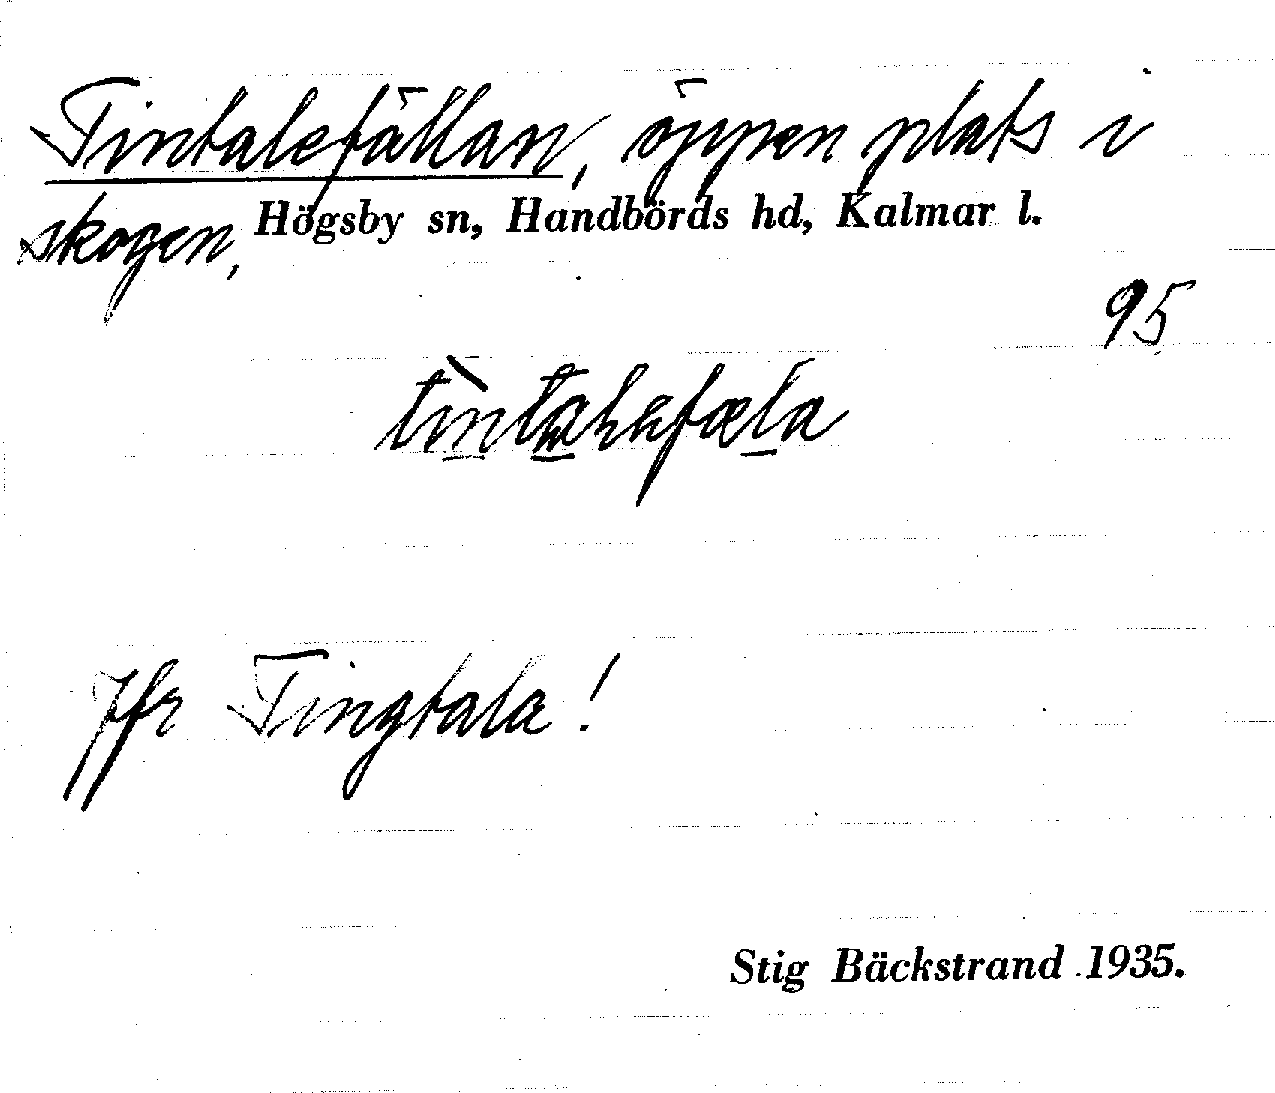 Tintalefällan, öppen plats i
skogen, Högsby sn, Handbörds hd, Kalmar l.
95
Jfr Tingtala!
Stig Bäckstrand 1935.